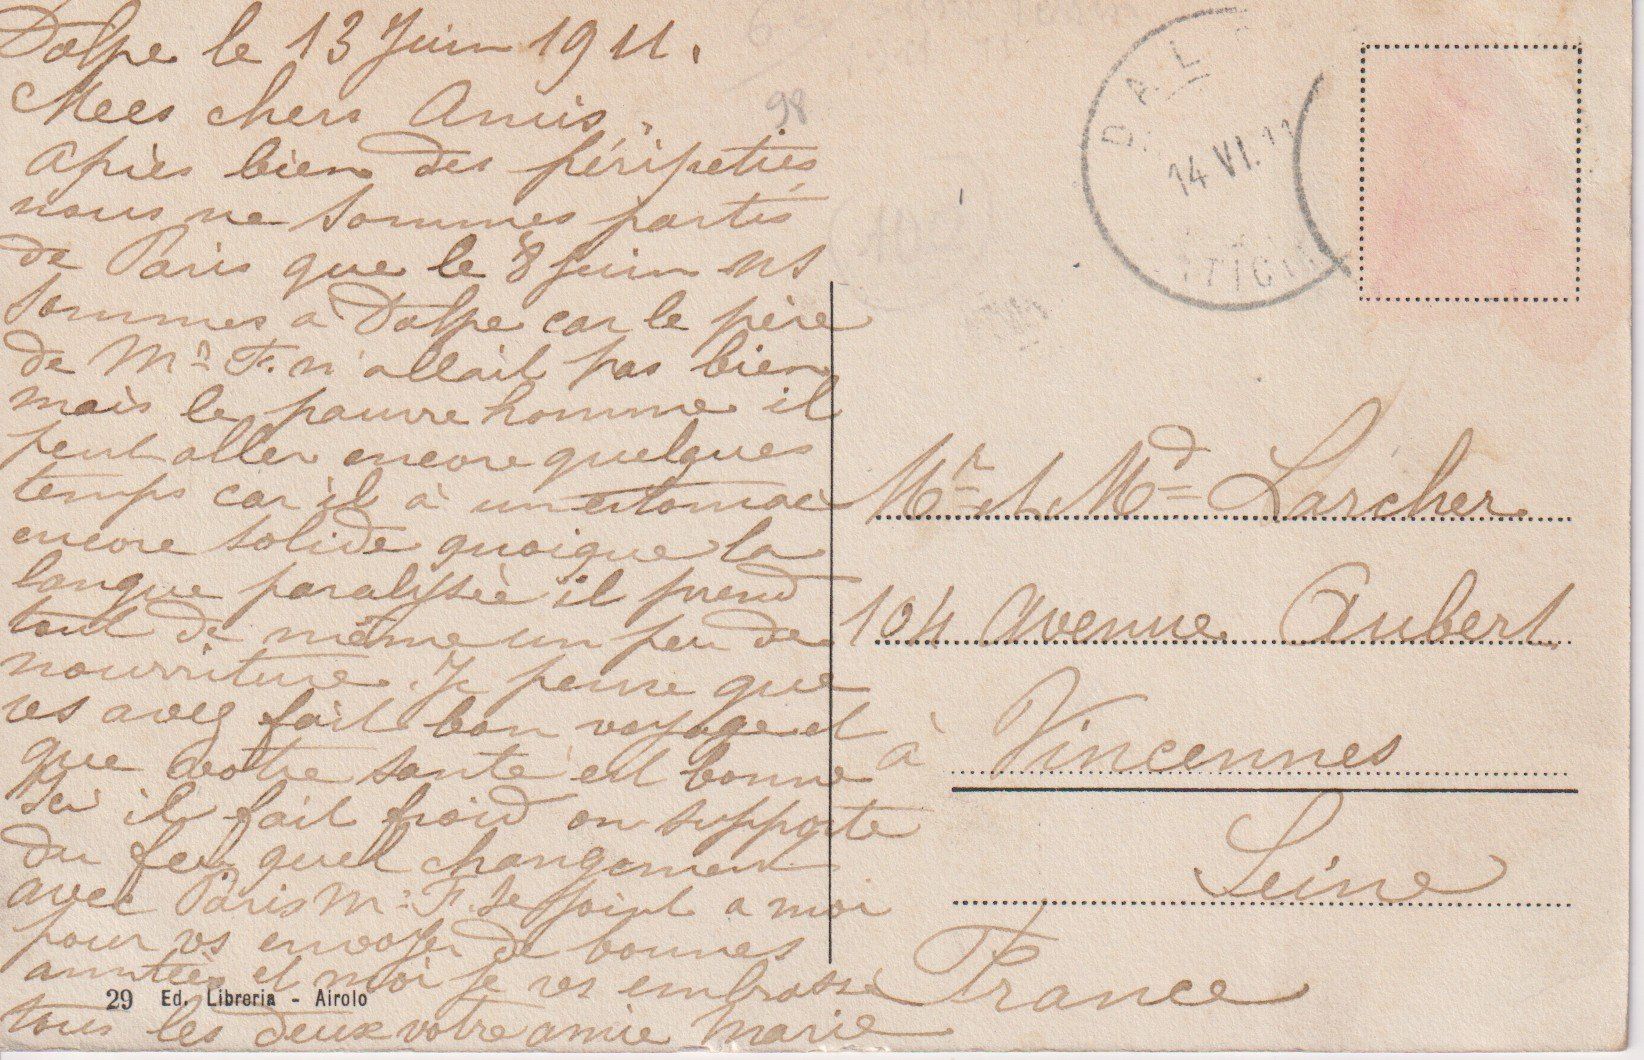 Dalpe le 13 Juin 1911.
Mees chers Amis.
Après bien des péripeties
nous ne sommes partis
de Paris que le 8 Juin ns
sommes a Dalpe car le père
de Mr F. n'allait pas bien
mais le pauvre homme il
peut aller encore quelques
temps car il à un estomac
encore solide quoique la
langue paralysée il prend
tout de même un peu de
nourriture. Je pense que
vs avez fait bon voyage et
que votre santé est bonne
Ici il fait froid on supporte
du feu quel changement
avec Paris Mr F. se joint a moi
pour vs envoyer de bonnes
amitiés et moi je vs embrasse
tous les deux votre amie Marie
29 Ed. Libreria - Airolo
98
DAL
14 VI. 11
(TICI
Mr et Md Larcher
104 Avenue Aubert
à Vincennes
Seine
France